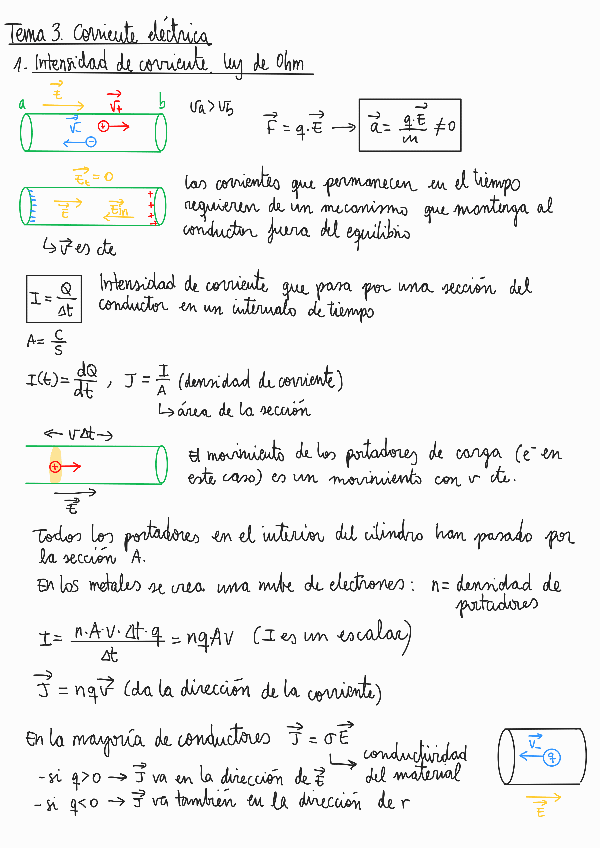 Tema 3. Corriente eléctrica
1. Intensidad de corriente. Ley de Ohm
a E⃗ v⃗+ b Va > Vb
v⃗- + - F⃗ = q·E⃗ → a⃗ = q·E⃗/m ≠ 0
E⃗t = 0
E⃗ E⃗in
Las corrientes que permanecen en el tiempo
requieren de un mecanismo que mantenga al
conductor fuera del equilibrio
↳ v⃗ es cte
I = Q/Δt Intensidad de corriente que pasa por una sección del
conductor en un intervalo de tiempo
A = C/S
I(t) = dQ/dt , J = I/A (densidad de corriente)
↳ área de la sección
← vΔt →
+ → El movimiento de los portadores de carga (e⁻ en
este caso) es un movimiento con v cte.
E⃗
Todos los portadores en el interior del cilindro han pasado por
la sección A.
En los metales se crea una nube de electrones: n = densidad de
portadores
I = n·A·v·Δt·q/Δt = nqAv (I es un escalar)
J⃗ = nqv⃗ (da la dirección de la corriente)
En la mayoría de conductores J⃗ = σE⃗
↳ conductividad
del material
- si q>0 → J⃗ va en la dirección de E⃗
- si q<0 → J⃗ va también en la dirección de r
v⃗- q
E⃗